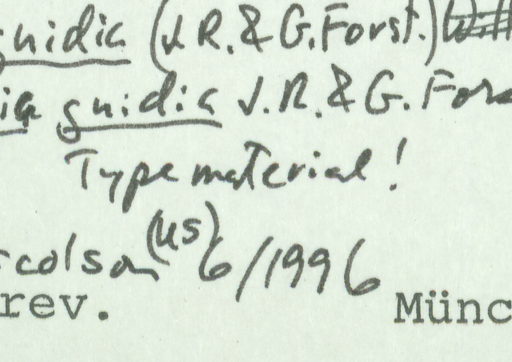 gnidia (J.R. & G. Forst.)
ia gnidia J.R. & G. Fors
Type material!
rcolson (US) 6/1996
rev. Münc